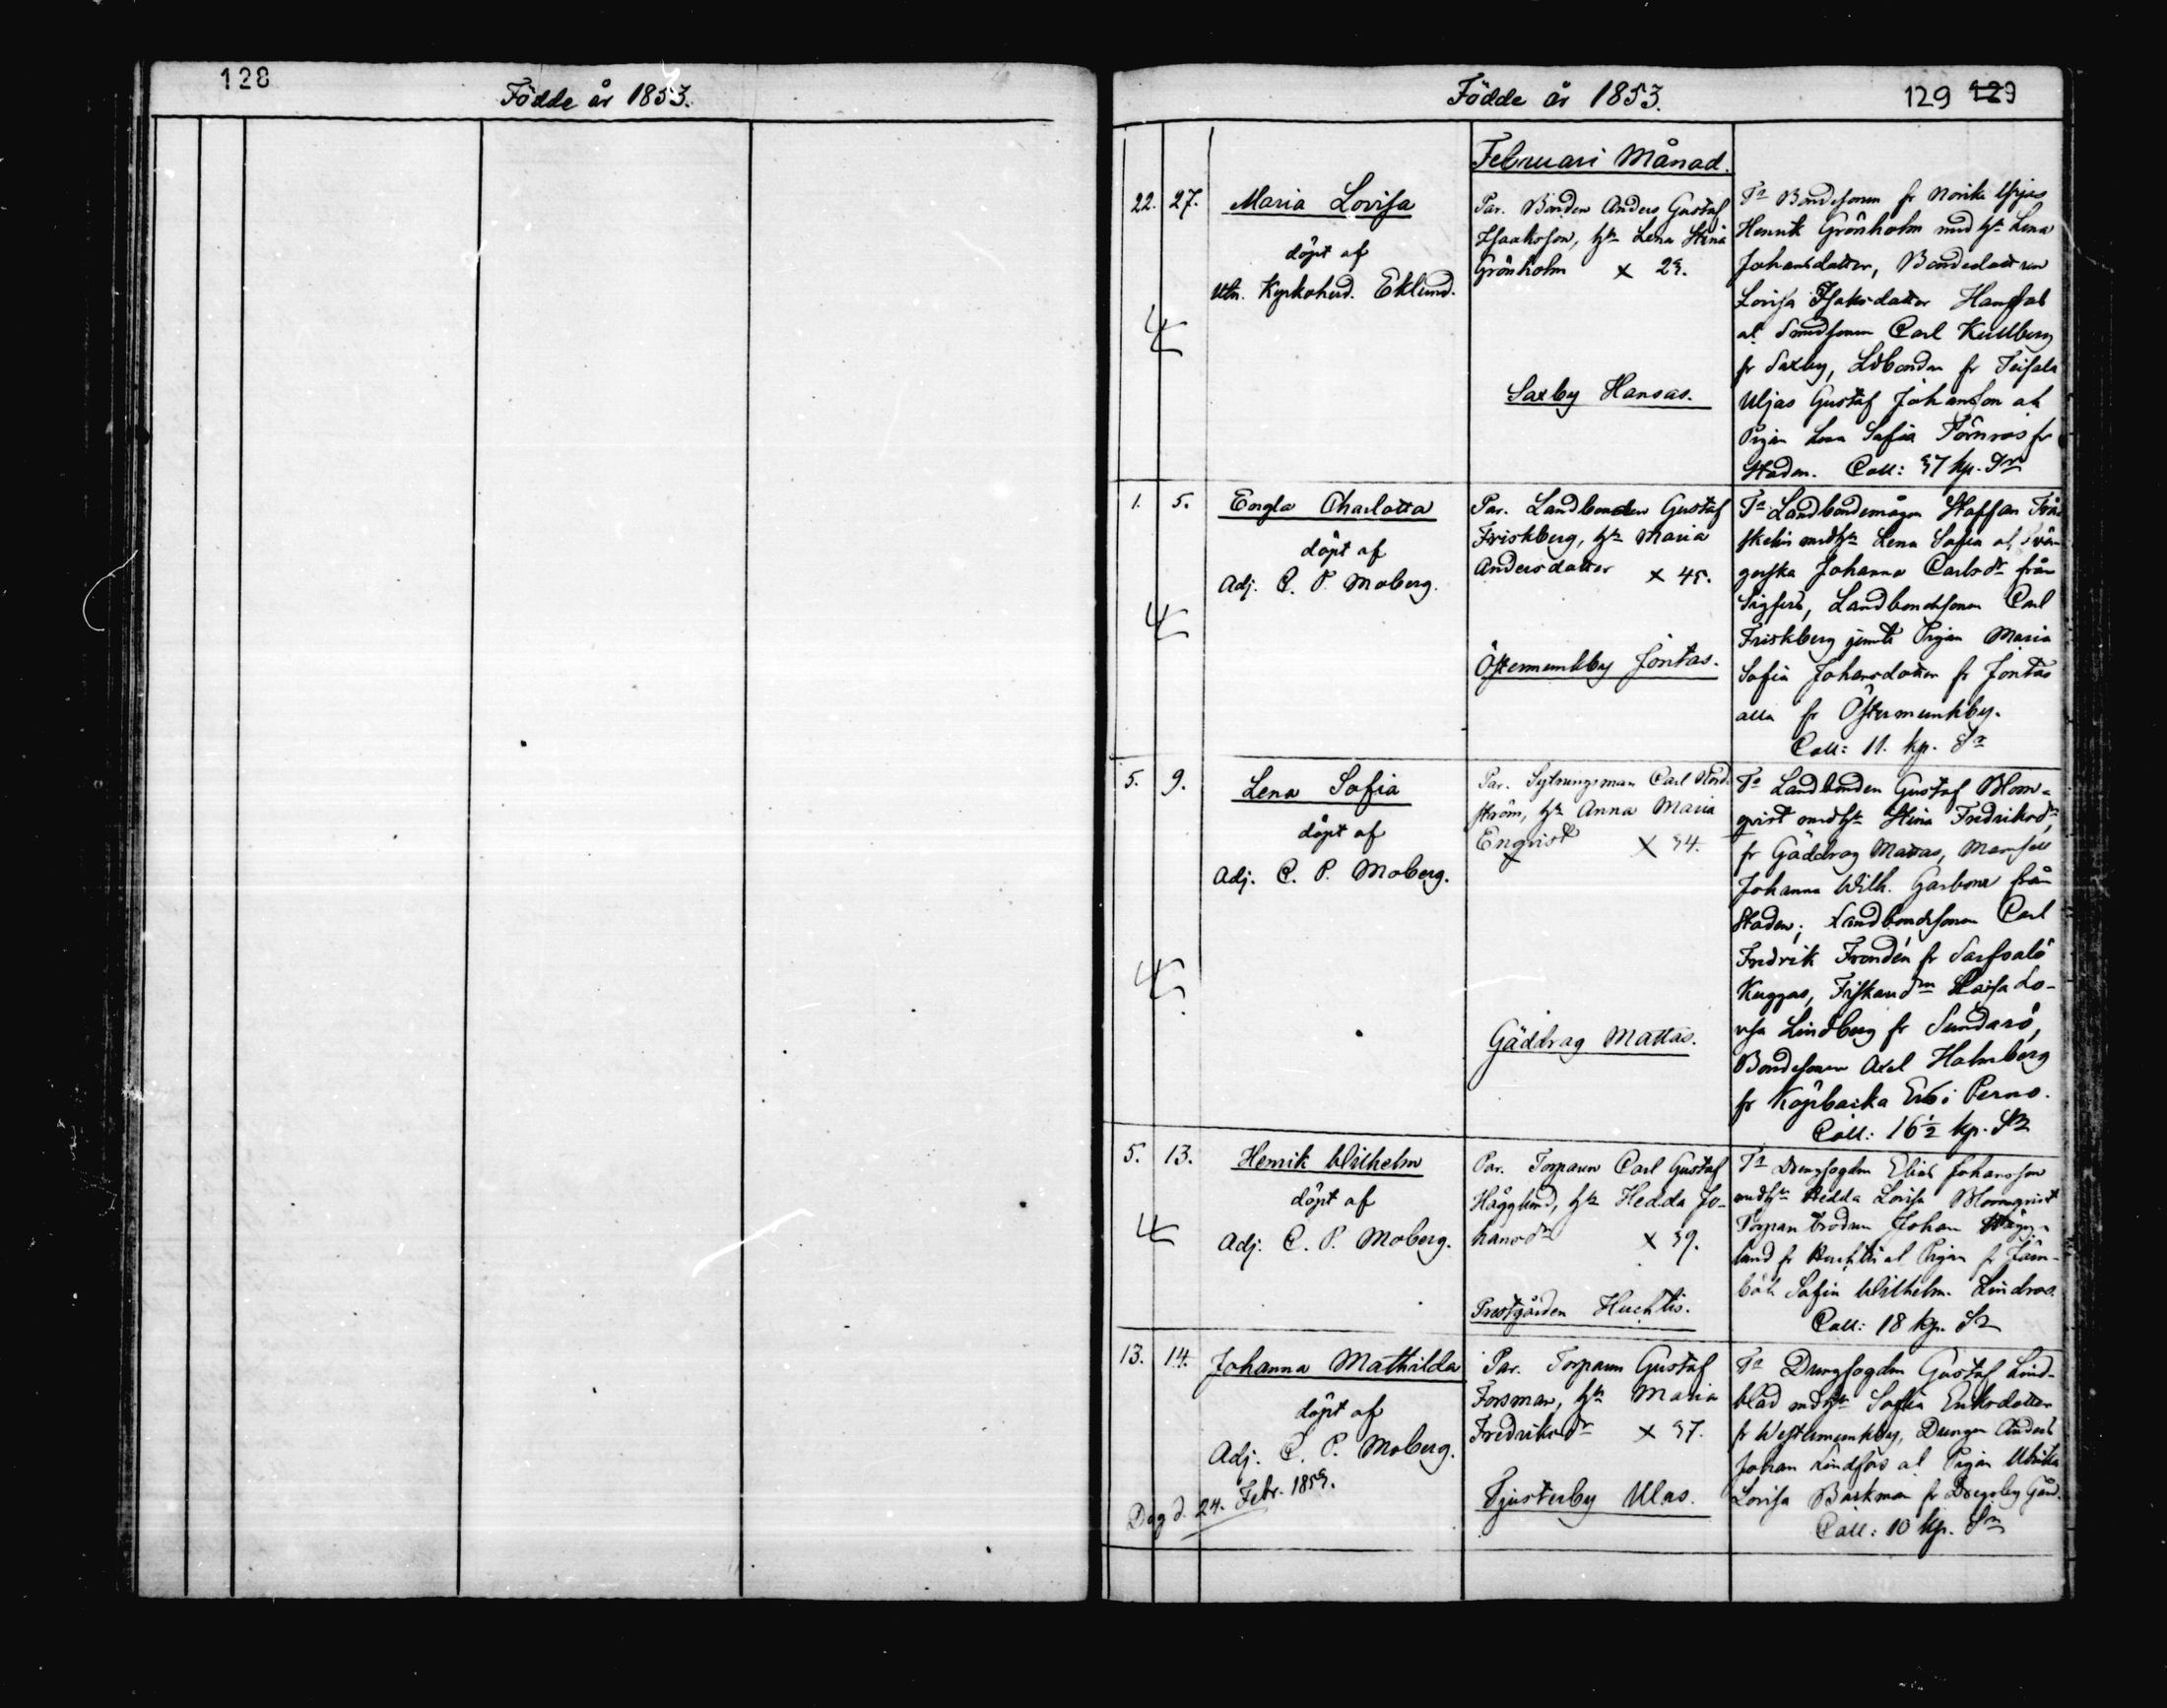 128
Födde år 1853.
Födde år 1853.
129 129
Februari Månad.
22. 27. Maria Lovisa
döpt af
Utn. Kyrkoherd. Eklund.
Par. Bonden Anders Gustaf
Isaaksson, h:n Lena Stina
Grönholm x 23.
Saxby Hansas.
F:a Bondesonen fr Norike
Henrik Grönholm med h:n Lena
Johansdatter, Bondedattren
Lovisa Isaksdatter Hansas
at Carl Kullberg
fr Saxby, Ldbonden fr Teisala
Uljas Gustaf Johansson at
Pigan Lena Sofia Törnroos fr
Staden. Coll: 37 kp. S:r
1. 5. Engla Charlotta
döpt af
Adj. C. P. Moberg.
Par. Landbonden Gustaf
Friskberg, h:n Maria
Andersdatter x 45.
Östermunkby Jontas.
F:a Landbondemågen Staffan
med h:n Lena Sofia at Svän-
gerska Johanna Carlsd:r från
Sigfrids, Landbondesonen Carl
Friskberg jemte Pigan Maria
Sofia Johansdotter fr Jontas
alla fr Östermunkby.
Coll: 11. kp. S:r
5. 9. Lena Sofia
döpt af
Adj. C. P. Moberg.
Par. Sytningsman Carl Nord-
ström, h:n Anna Maria
Enqvist x 34.
Gäddrag Mattas.
F:a Landbonden Gustaf Blom-
qvist med h:n Stina Fredriksd:r
fr Gäddrag Mattas, Mamsell
Johanna Wilh. Garbone från
Staden; Landbondesonen Carl
Fredrik Frondén fr Sarfsalö
Kuggas, Fiskared:n Lo-
visa Lindberg fr Sundarö,
Bondesonen Axel Holmberg
fr Köpbacka Erb i Perno.
Coll: 16½ kp. S:r
5. 13. Henrik Wilhelm
döpt af
Adj. C. P. Moberg.
Par. Torparen Carl Gustaf
Hägglund, h:n Hedda Jo-
hansd:r x 39.
Prestgården Huchtis.
F:a Drengfogden Elias Johansson
med h:n Hedda Lovisa Blomqvist
Torpare brodren Johan Hägg-
lund fr Huchtis at Pigan fr Jern-
böle Sofia Wilhelm. Lindroos.
Coll: 18 kp. S:r
13. 14. Johanna Mathilda
döpt af
Adj. C. P. Moberg.
Dog d. 24. Febr. 1853.
Par. Torparen Gustaf
Forsman, h:n Maria
Fredriksd:r x 37.
Tjusterby Ulas.
F:a Drengfogden Gustaf Lind-
blad med h:n Sofia Eriksdotter
fr Westermunkby, Drengen Anders
Johan Lindfors at Pigan Ulrika
Lovisa Backman fr Gård.
Coll: 10 kp. S:r